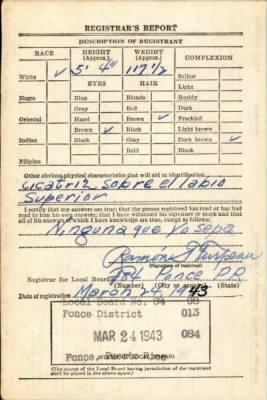 REGISTRAR'S REPORT
DESCRIPTION OF REGISTRANT
RACE HEIGHT (Approx.) WEIGHT (Approx.) COMPLEXION
White ✓ 5' 4" 117 1/2 Sallow
EYES HAIR Light
Negro Blue Blonde Ruddy
Gray Red Dark
Oriental Hazel Brown ✓ Freckled
Brown ✓ Black Light brown
Indian Black Gray Dark brown ✓
Bald Black
Filipino
Other obvious physical characteristics that will aid in identification
Cicatriz sobre el labio
Superior
I certify that my answers are true; that the person registered has read or has had
read to him his own answers; that I have witnessed his signature or mark and that
all of his answers of which I have knowledge are true, except as follows:
Ninguna que yo sepa
Ramon
(Signature of registrar)
Registrar for Local Board 84 Ponce P.R.
(Number) (City or county) (State)
Date of registration Marzo 24, 1943
Local Board No. 84 68
Ponce District 013
MAR 24 1943 084
Ponce, Puerto Rico
(The stamp of the Local Board having jurisdiction of the registrant
shall be placed in the above space.)